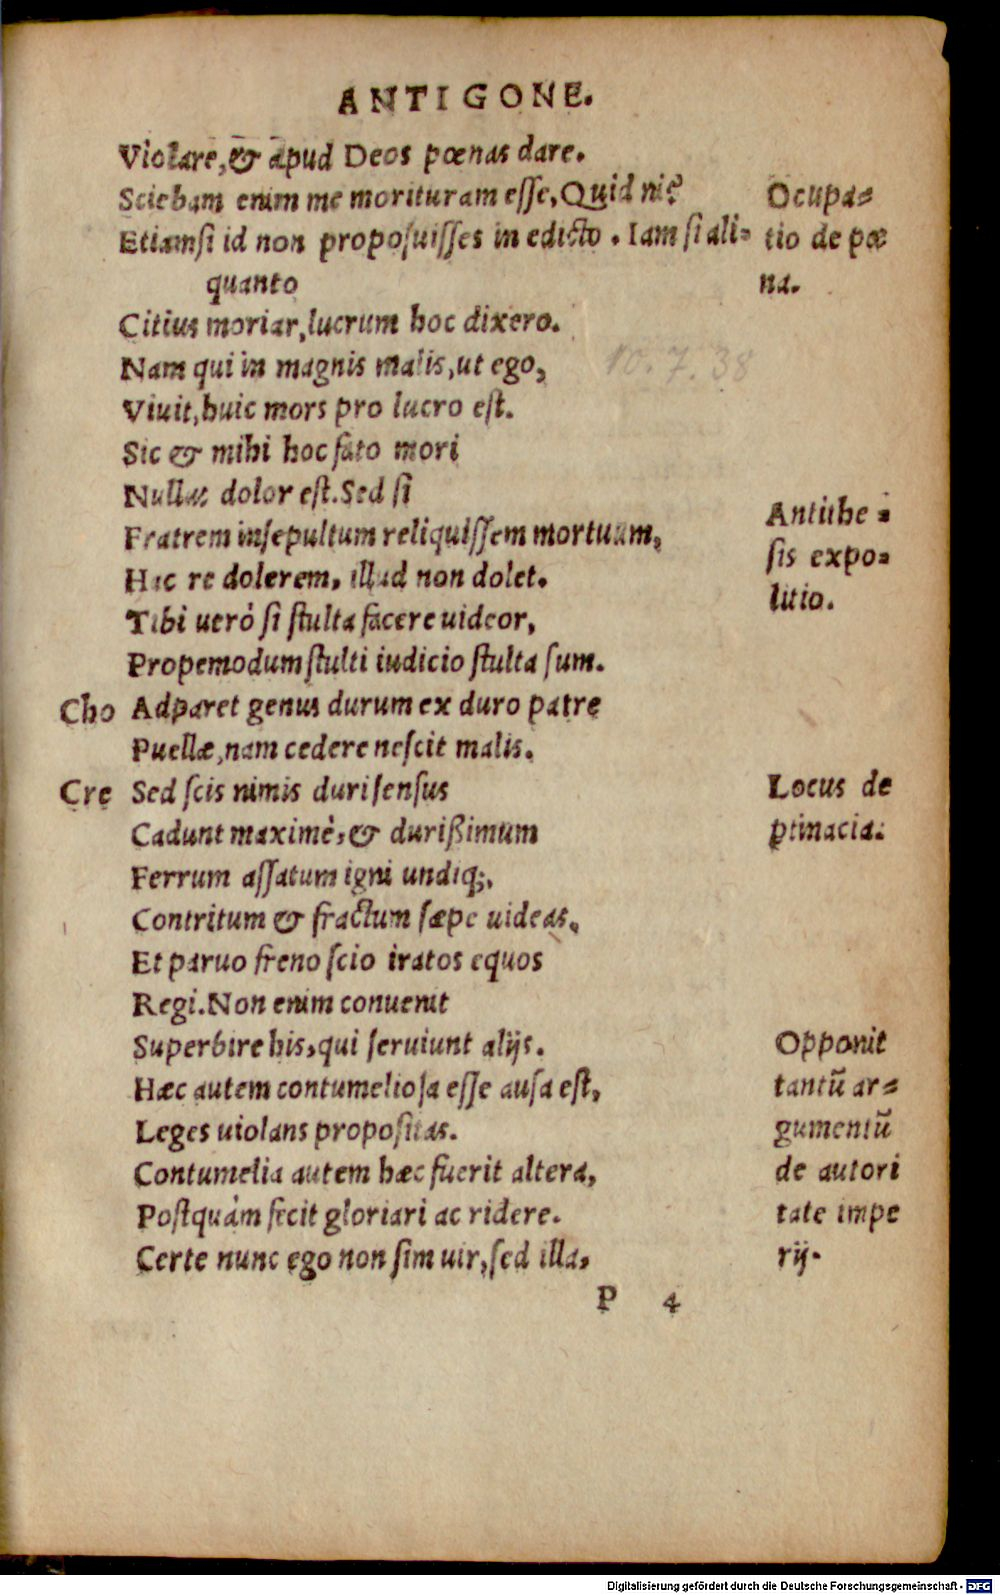 ANTIGONE.
Violare, & apud Deos pœnas dare.
Sciebam enim me morituram esse, Quid ni?
Etiamsi id non proposuisses in edicto. Iam si ali-
quanto
Citius moriar, lucrum hoc dixero.
Nam qui in magnis malis, ut ego,
Viuit, huic mors pro lucro est.
Sic & mihi hoc fato mori
Nullus dolor est. Sed si
Fratrem insepultum reliquissem mortuum,
Hac re dolerem, illud non dolet.
Tibi uerò si stulta facere uideor,
Propemodum stulti iudicio stulta sum.
Cho Adparet genus durum ex duro patre
Puellæ, nam cedere nescit malis.
Cre Sed scis nimis duri sensus
Cadunt maximè, & durißimum
Ferrum assatum igni undiq;,
Contritum & fractum sæpe uideas,
Et paruo freno scio iratos equos
Regi. Non enim conuenit
Superbire his, qui seruiunt alijs.
Hæc autem contumeliosa esse ausa est,
Leges uiolans propositas.
Contumelia autem hæc fuerit altera,
Postquàm fecit gloriari ac ridere.
Certe nunc ego non sim uir, sed illa,
P 4
Ocupa-
tio de pœ
na.
Antithe-
sis expo-
litio.
Locus de
ꝑtinacia.
Opponit
tantũ ar-
gumentũ
de autori
tate impe
rij.
10.7.38
Digitalisierung gefördert durch die Deutsche Forschungsgemeinschaft - DFG